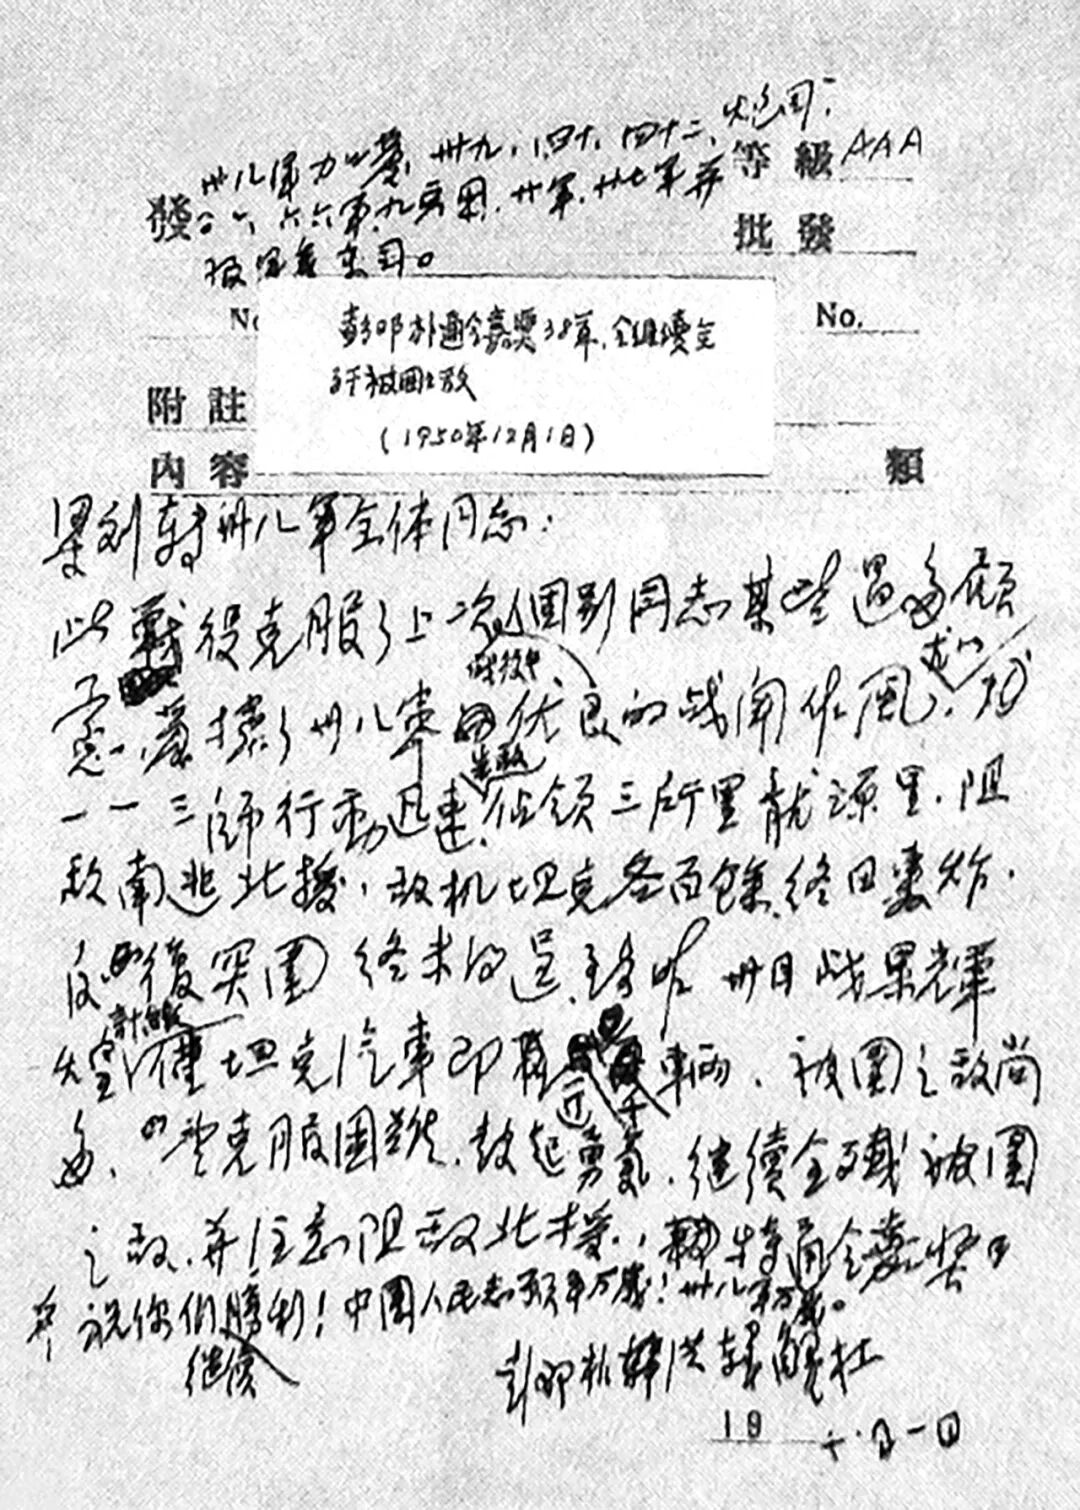 等級 AAA
卅八軍 卅九、四十、四十二、
發 六六軍、九兵團、廿軍、廿七軍并
批發
報軍委東司。
No. No.
彭邓朴通令嘉奖38軍,令继續全
歼被圍之敌
(1950年12月1日)
附註
內容 類
梁刘轉卅八軍全体同志:
此戰役克服了上次個别同志某些過多顧
战役中
慮,發揚了卅八軍優良的战闘作風,尤以
先敌
一一三師行動迅速佔领三所里龍源里,阻
敌南逃北援。敌机坦克各百餘,終日轟炸,
反復突圍終未得逞。至昨卅日战果輝
計缴
煌僅坦克汽車即近千輛。被圍之敌尚
多,望克服困難,鼓起勇氣,继續全歼被圍
之敌,并注意阻敌北援。特通令嘉奖
并祝你们继续勝利!中國人民志願軍万歲!卅八軍万歲。
彭邓朴洪韓解杜
19 十二月一日